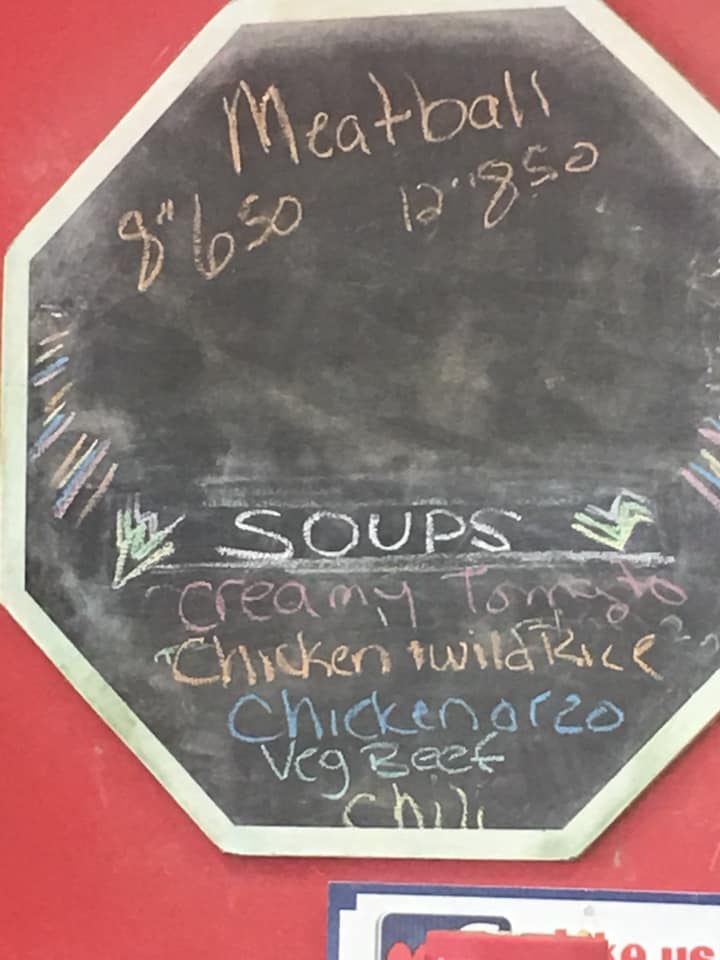 Meatball
8" 650 12" 850
SOUPS
Creamy Tomato
Chicken + wild Rice
Chicken orzo
Veg Beef
Chili
ke us